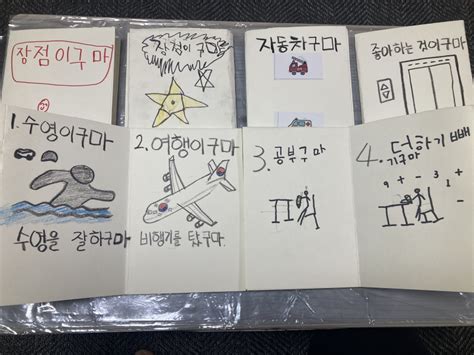 장점이구마
장점이구마
자동차구마
좋아하는 것이구마
1. 수영이구마
수영을 잘하구마
2. 여행이구마
비행기를 탔구마.
3. 공부구마
4. 더하기 빼
기구마
9 + - 3 1